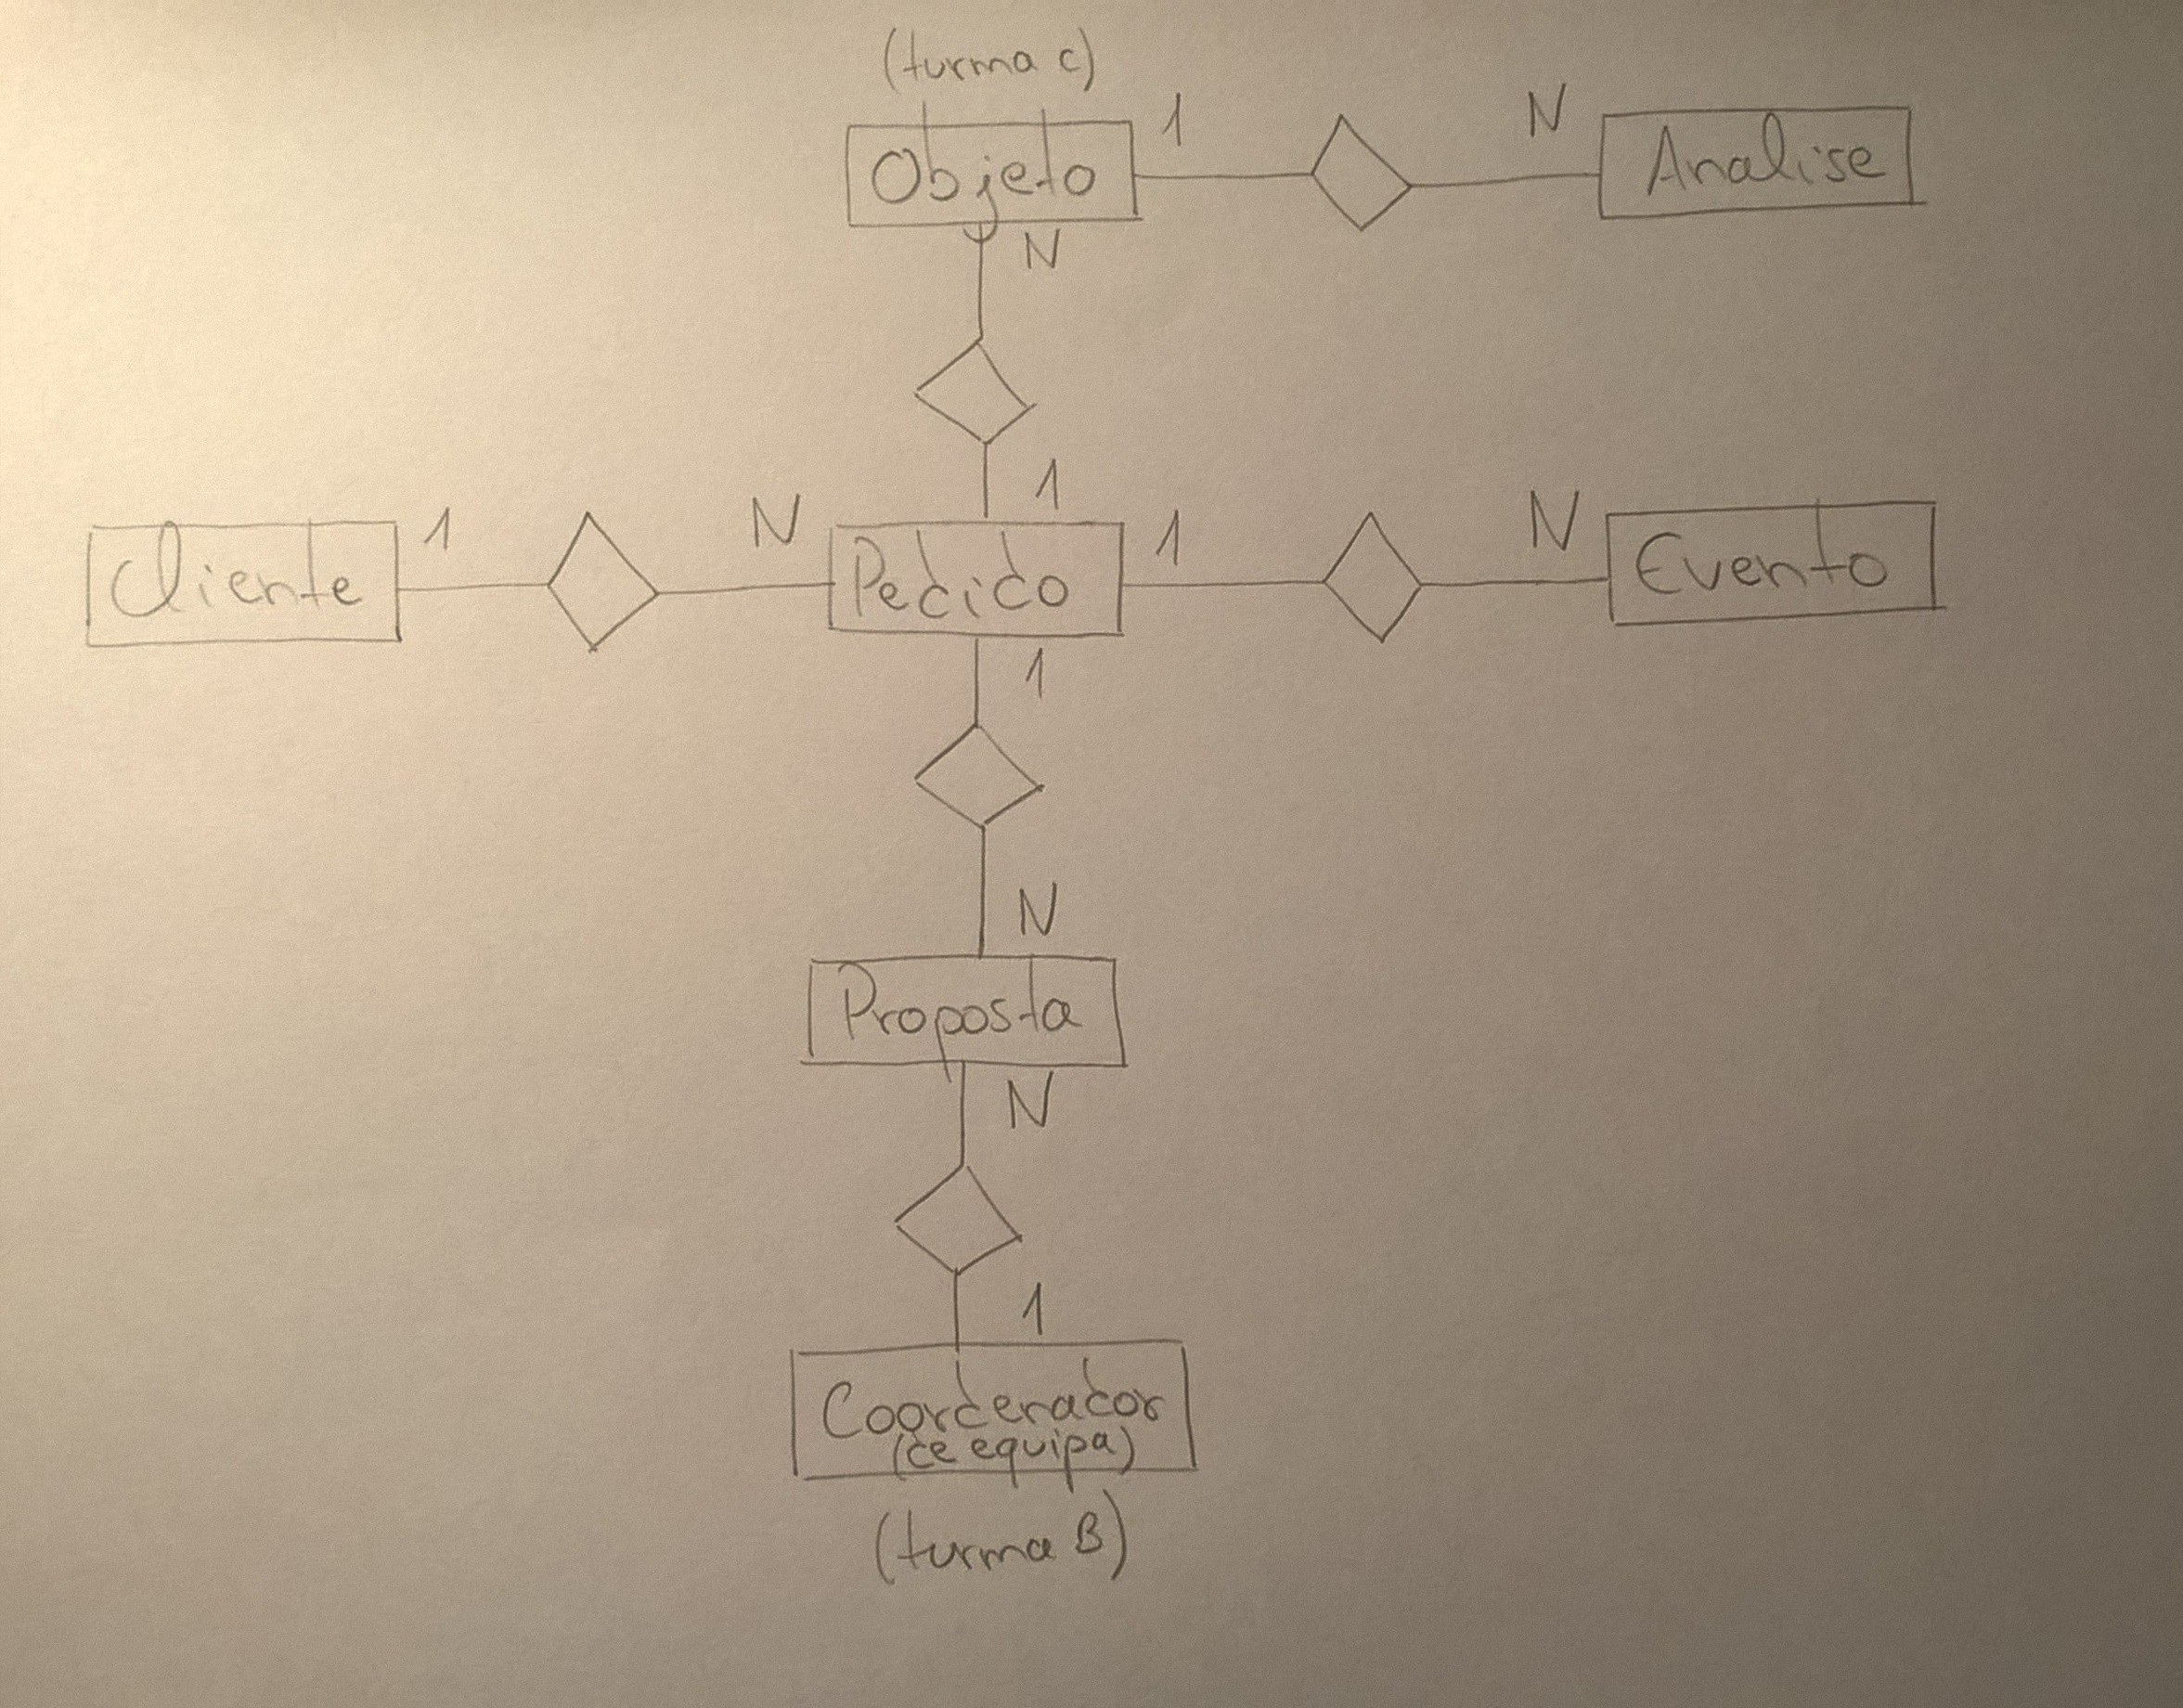 (turma c)
Objeto
1
N
Analise
N
1
Cliente
1
N
Pedido
1
N
Evento
1
N
Proposta
N
1
Coordenador
(de equipa)
(turma B)